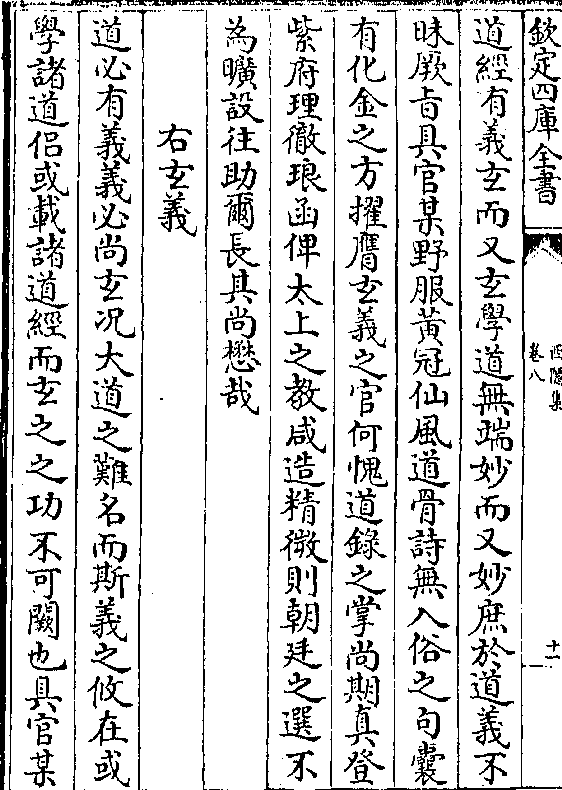 欽定四庫全書
西隱集
卷八
十一
道經有義玄而又玄學道無端妙而又妙庶於道義不
昧厥㫖具官某野服黃冠仙風道骨詩無入俗之句囊
有化金之方擢膺玄義之官何愧道錄之掌尚期真登
紫府理徹琅函俾太上之教咸造精微則朝廷之選不
為曠設往助爾長其尚懋哉
右玄義
道必有義義必尚玄况大道之難名而斯義之攸在或
學諸道侣或載諸道經而玄之之功不可闕也具官某